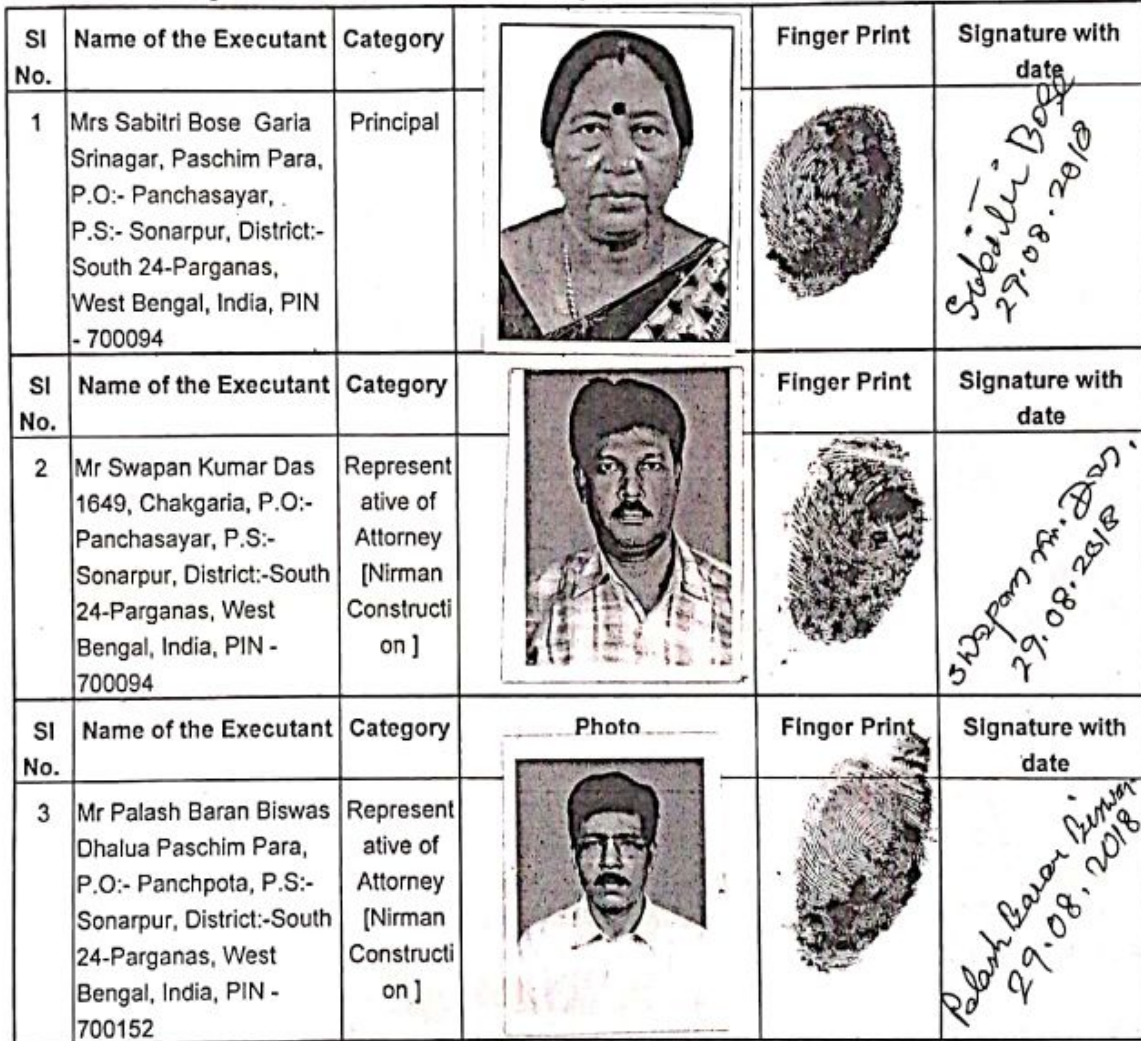 Sl No.
Name of the Executant
Category
Finger Print
Signature with date
1
Mrs Sabitri Bose Garia
Srinagar, Paschim Para,
P.O:- Panchasayar,
P.S:- Sonarpur, District:-
South 24-Parganas,
West Bengal, India, PIN
- 700094
Principal
Sabitri Bose
29.08.2018
Sl No.
Name of the Executant
Category
Finger Print
Signature with date
2
Mr Swapan Kumar Das
1649, Chakgaria, P.O:-
Panchasayar, P.S:-
Sonarpur, District:-South
24-Parganas, West
Bengal, India, PIN -
700094
Represent
ative of
Attorney
[Nirman
Constructi
on ]
Swapan Km. Das.
29.08.2018
Sl No.
Name of the Executant
Category
Photo
Finger Print
Signature with date
3
Mr Palash Baran Biswas
Dhalua Paschim Para,
P.O:- Panchpota, P.S:-
Sonarpur, District:-South
24-Parganas, West
Bengal, India, PIN -
700152
Represent
ative of
Attorney
[Nirman
Constructi
on ]
Palash Baran Biswas
29.08.2018